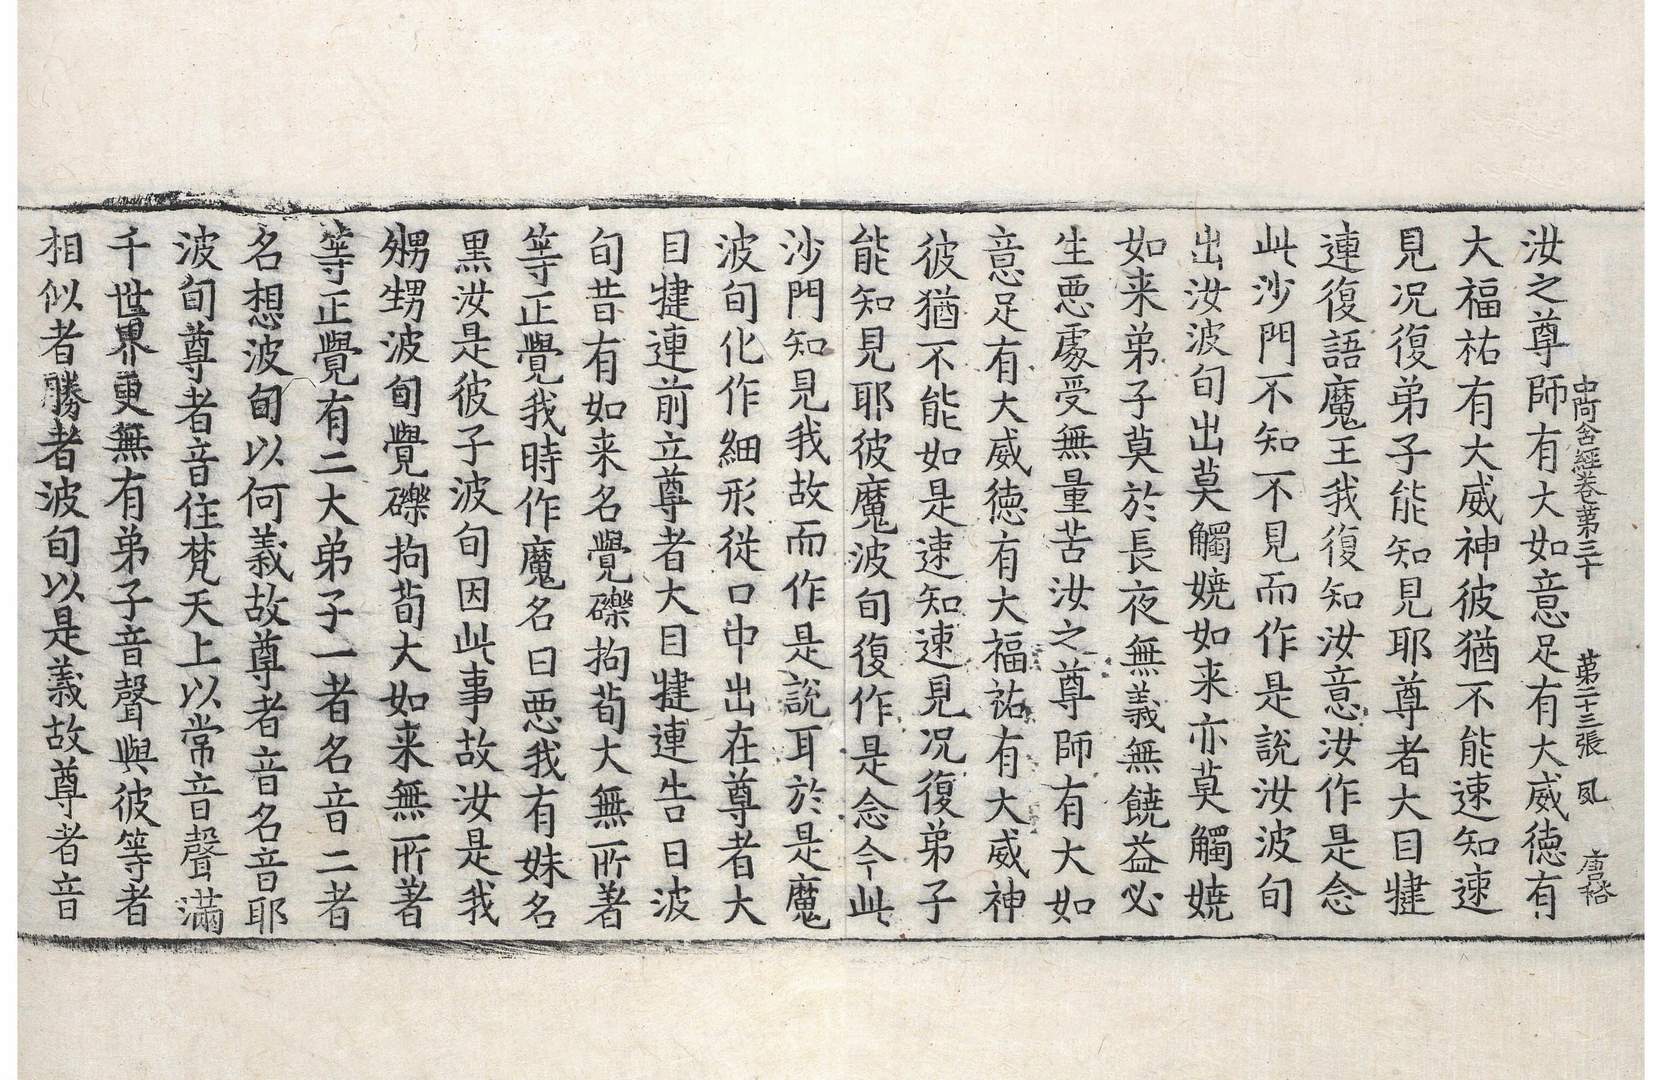 中阿含經卷第三十 第二十三張 夙 唐裕
汝之尊師有大如意足有大威徳有
大福祐有大威神彼猶不能速知速
見况復弟子能知見耶尊者大目揵
連復語魔王我復知汝意汝作是念
此沙門不知不見而作是說汝波旬
出汝波旬出莫觸嬈如来亦莫觸嬈
如来弟子莫於長夜無義無饒益必
生悪處受無量苦汝之尊師有大如
意足有大威徳有大福祐有大威神
彼猶不能如是速知速見况復弟子
能知見耶彼魔波旬復作是念今此
沙門知見我故而作是說耳於是魔
波旬化作細形從口中出在尊者大
目揵連前立尊者大目揵連告曰波
旬昔有如来名覺礫拘荀大無所著
等正覺我時作魔名曰悪我有妹名
黒汝是彼子波旬因此事故汝是我
甥甥波旬覺礫拘荀大如来無所著
等正覺有二大弟子一者名音二者
名想波旬以何義故尊者音名音耶
波旬尊者音住梵天上以常音聲滿
千世界更無有弟子音聲與彼等者
相似者勝者波旬以是義故尊者音